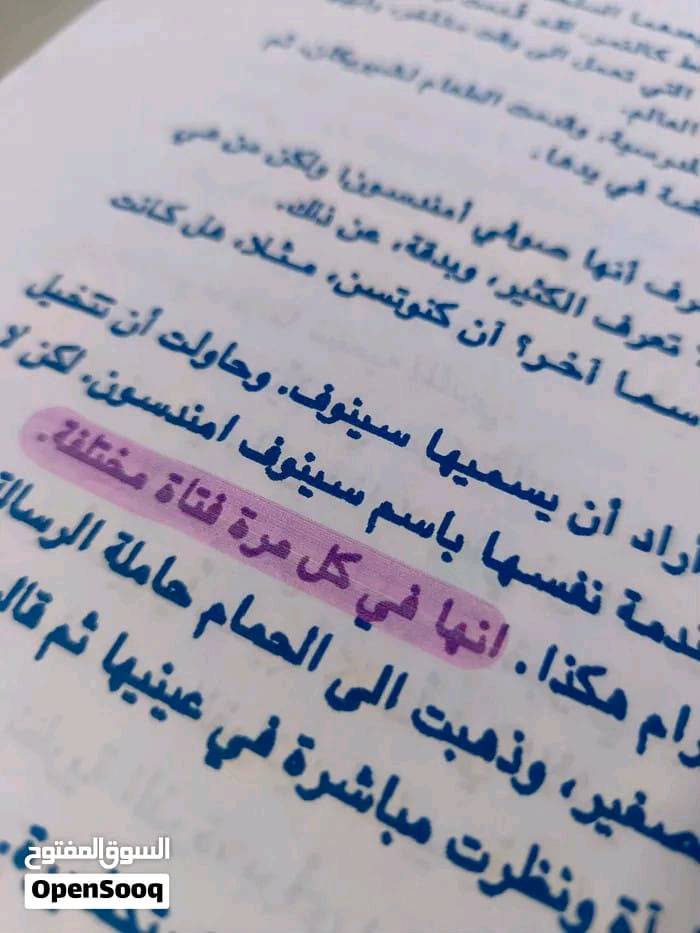 التي تعمل الى وقت
العالم.
وقدمت الطعام لشيريكان، ثم
في يدها.
رف أنها صوفي أمندسون! ولكن من هي
تعرف الكثير، وبدقة، عن ذلك.
سما آخر؟ آن كنوتسن، مثلا، هل كانت
أراد أن يسميها سينوف. وحاولت أن تتخيل
دمة نفسها باسم سينوف امندسون، لكن لا
رام هكذا. انها في كل مرة فتاة مختلفة.
صغير، وذهبت الى الحمام حاملة الرسالة
آة ونظرت مباشرة في عينيها ثم قال
السوق المفتوح
OpenSooq